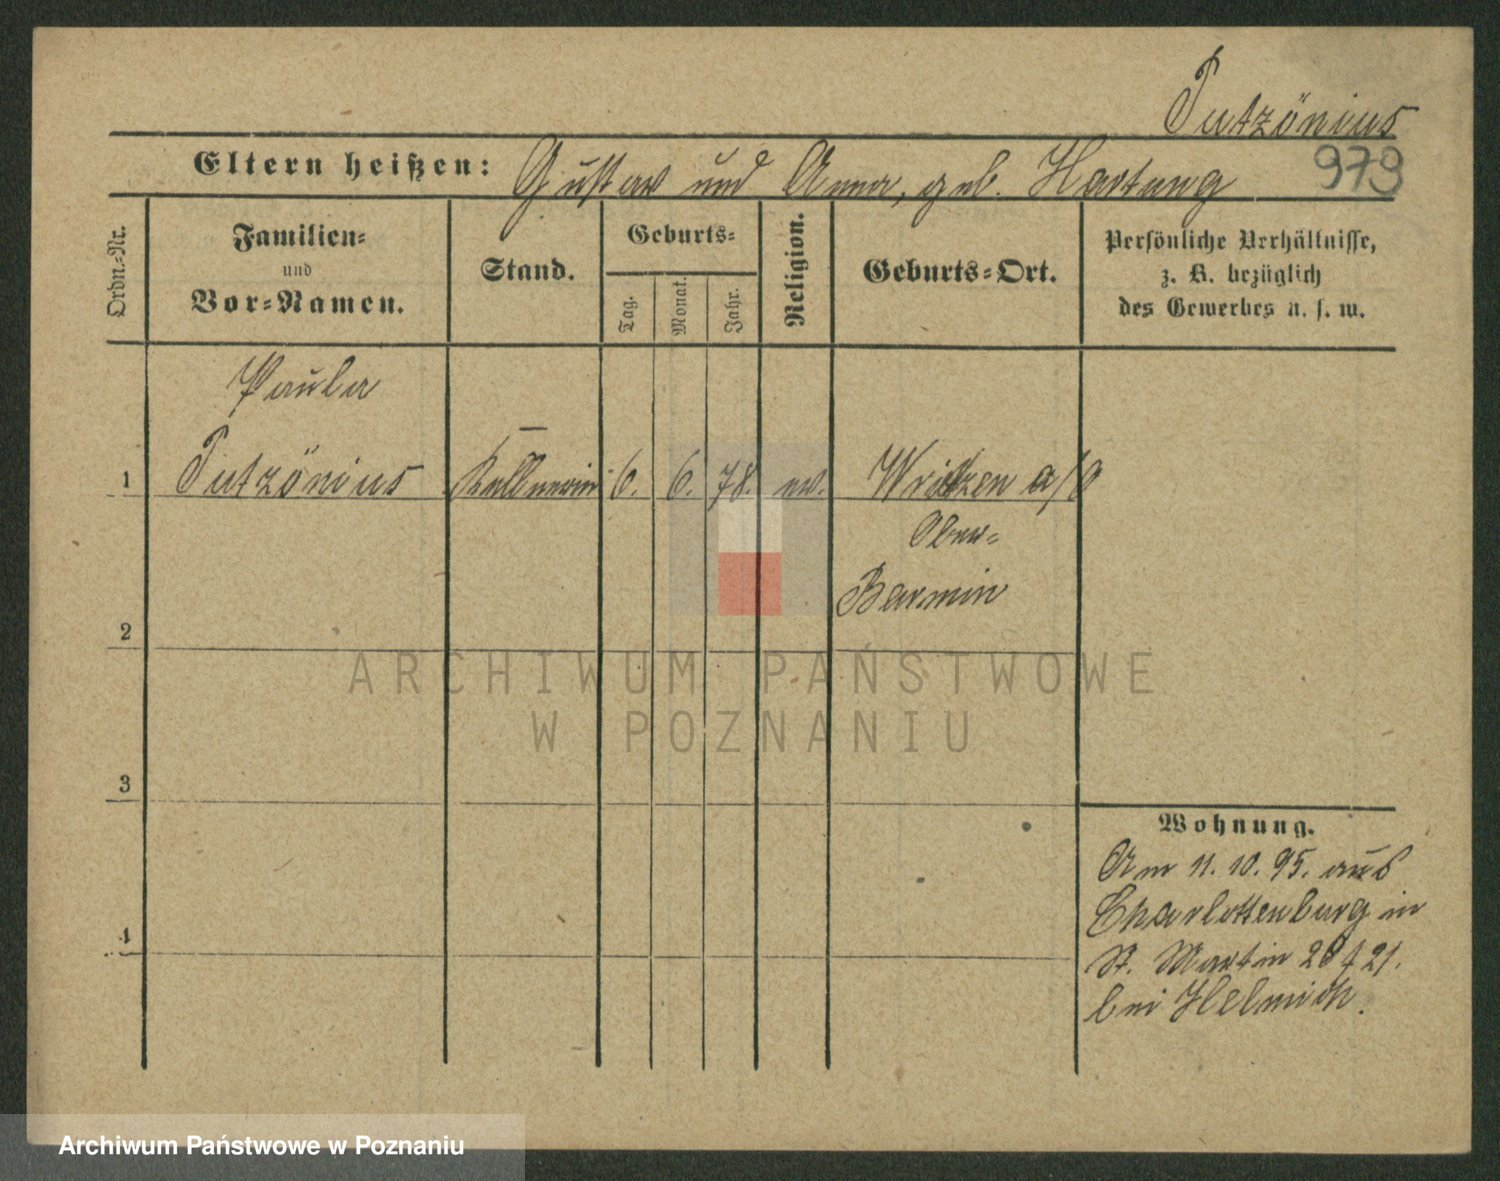 Putzönius
Eltern heißen: Gustav und Anna, geb. Hartung 979
Ordn.-Nr.
Familien-
und
Vor-Namen.
Stand.
Geburts-
Tag.
Monat.
Jahr.
Religion.
Geburts-Ort.
Persönliche Verhältnisse,
z. B. bezüglich
des Gewerbes u. s. w.
Paula
1 Putzönius Kellnerin 6. 6. 78. ev. Writzen a/O
Ober-
Barmin
2
3
4
Wohnung.
Am 11. 10. 95. aus
Charlottenburg in
St. Martin 20/21.
bei Helmich.
ARCHIWUM PAŃSTWOWE
W POZNANIU
Archiwum Państwowe w Poznaniu